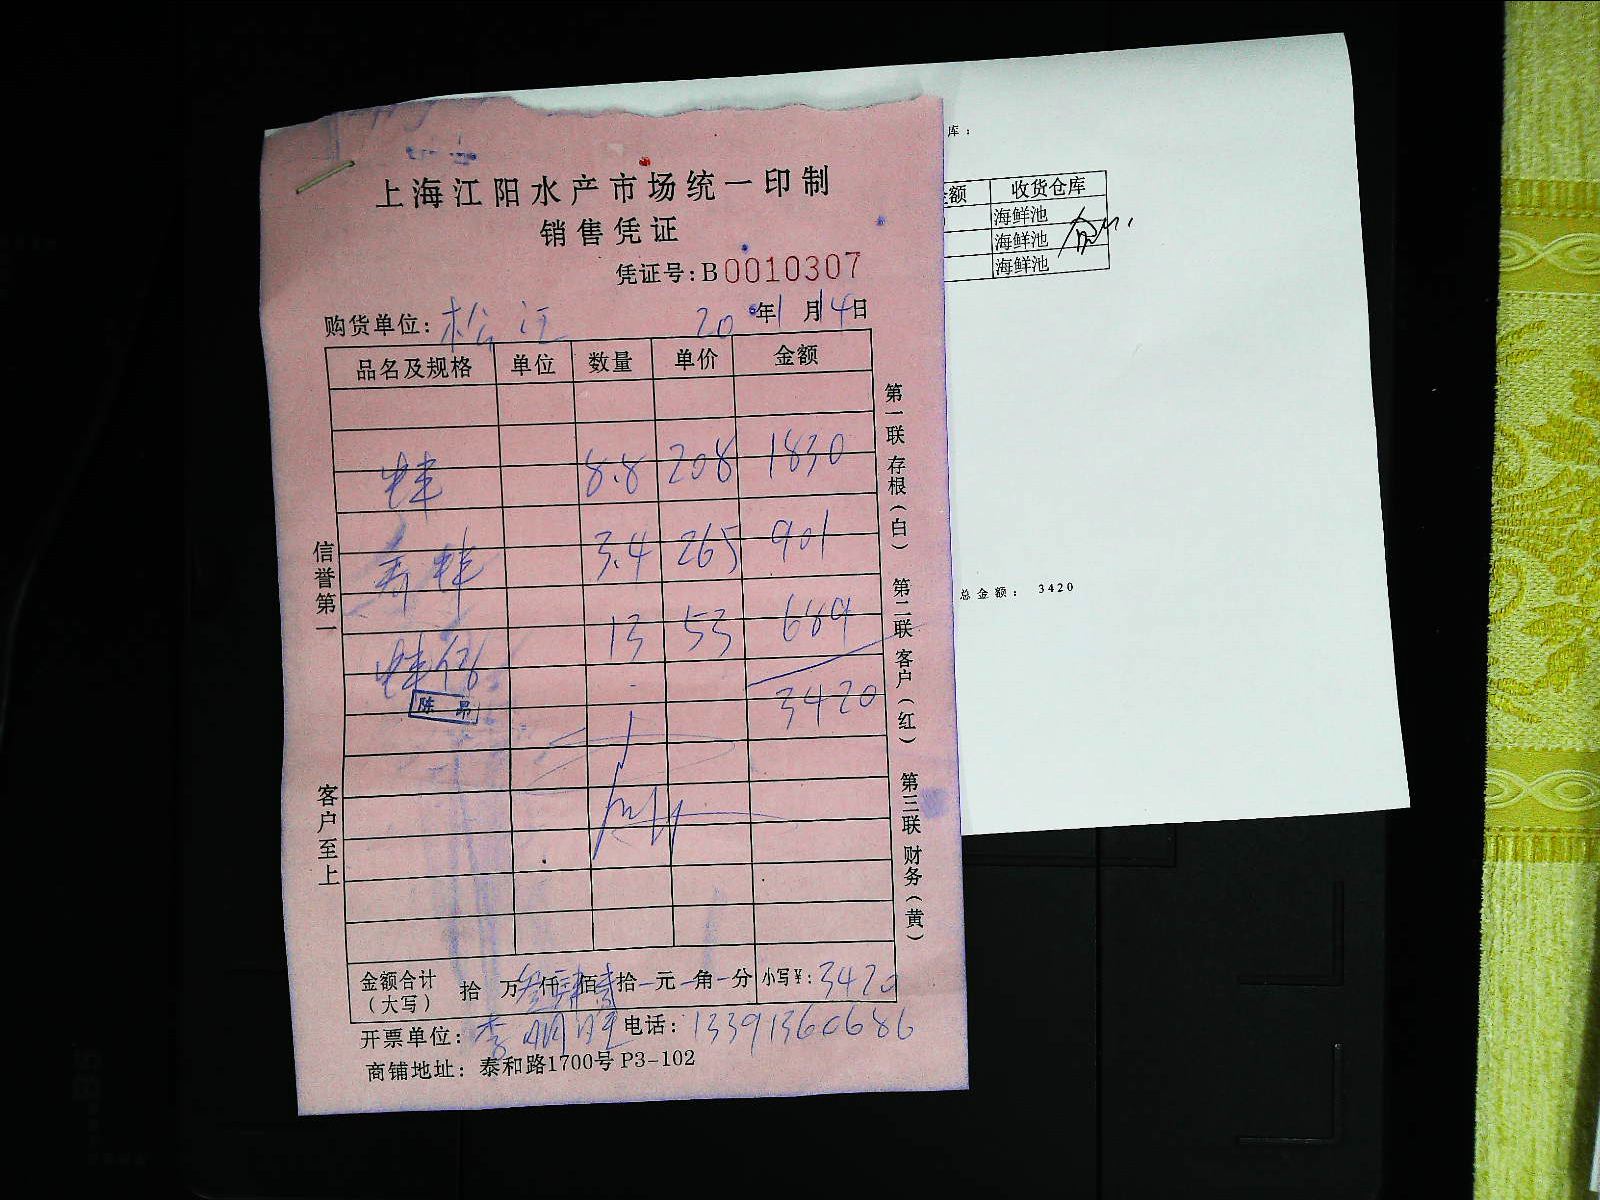 上海江阳水产市场统一印制
销售凭证
凭证号:B0010307
购货单位: 松江 20 年1月14日
品名及规格 单位 数量 单价 金额
8.8 208 1830
3.4 265 901
13 53 689
陈
3420
信誉第一
客户至上
第一联存根(白)
第二联客户(红)
第三联财务(黄)
金额合计(大写) 拾 万 仟 佰 拾 元 角 分 小写¥: 3420
开票单位: 李明 电话: 13391360686
商铺地址: 泰和路1700号 P3-102
库:
金额 收货仓库
海鲜池
海鲜池
海鲜池
总金额: 3420